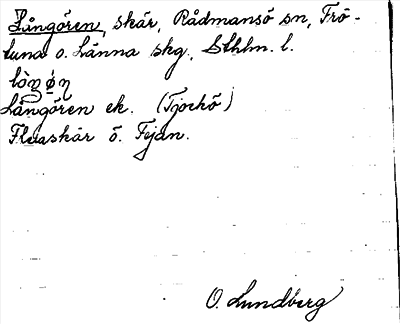 Långören, skär, Rådmansö sn, Frö-
tuna o. Länna skg., Sthlm. l.
lòŋǿŋ
Långören ek. (Tjockö)
Flera skär ö. Fejan.
O. Lundberg